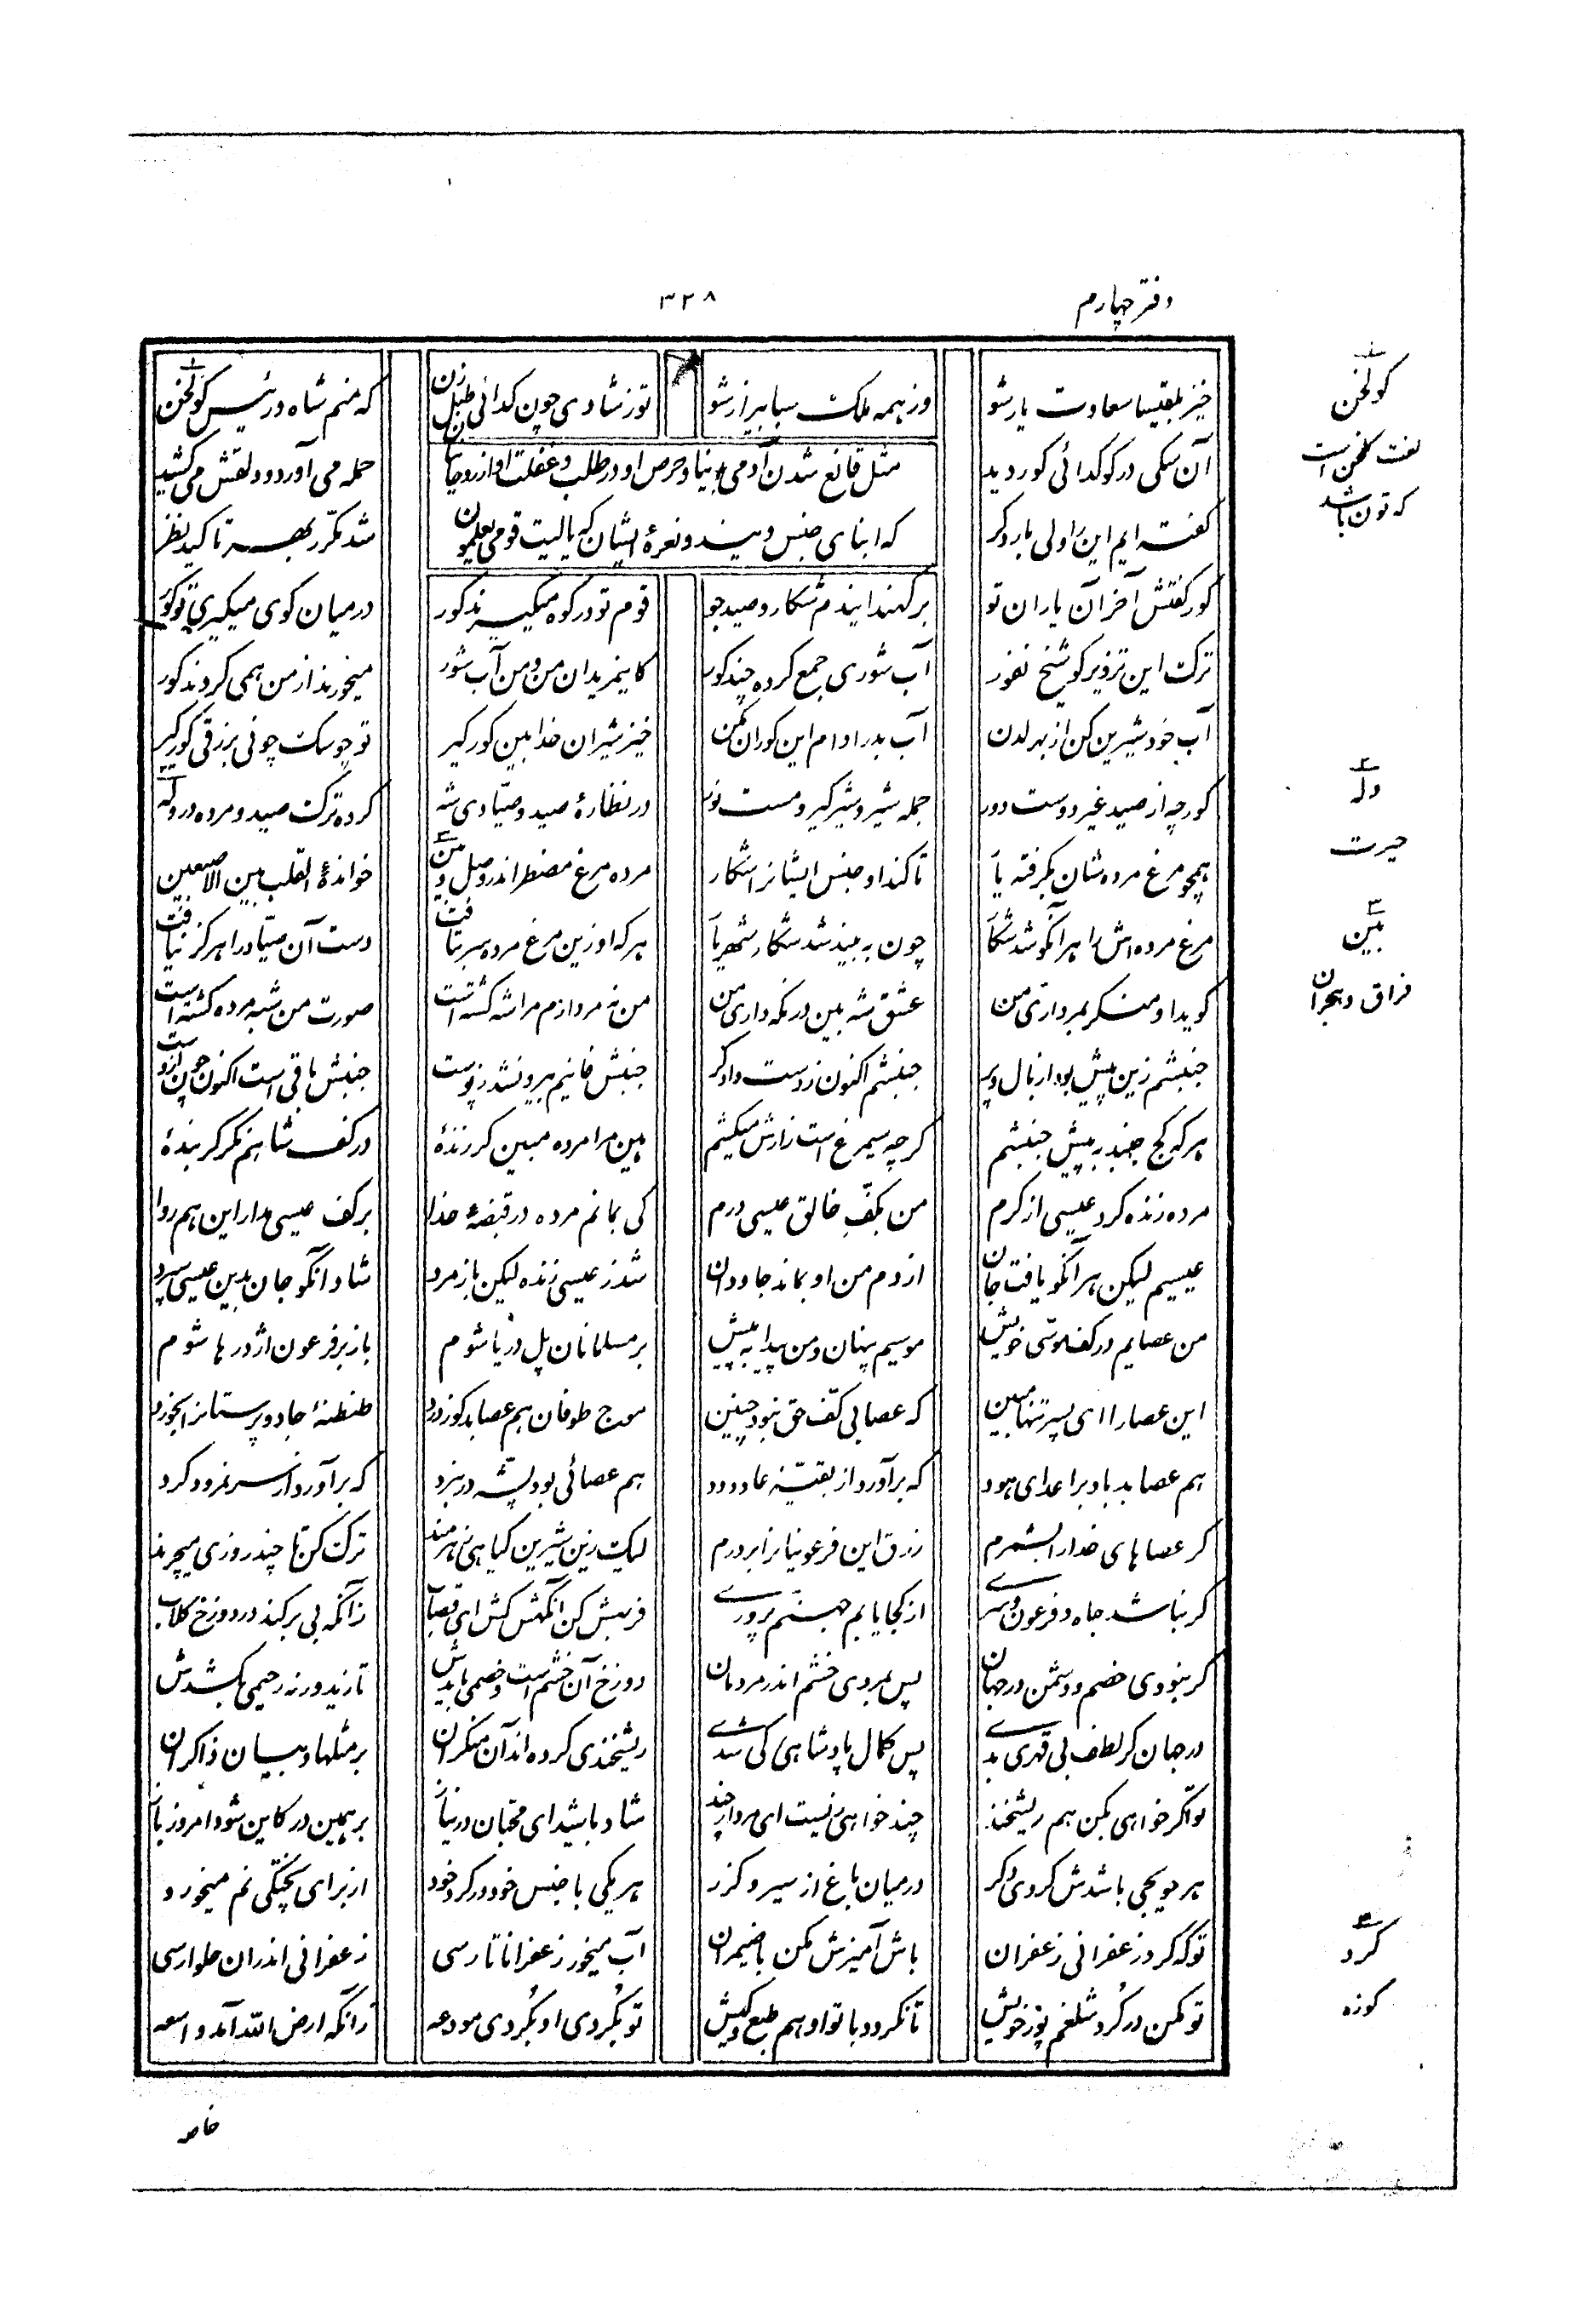 دفتر چهارم
۳۲۸
خیز بلقیسا سعادت یار شو وز همه ملک سبا بیزار شو تو ز شادی چون گدائی طبل زن که منم شاه و رئیس گولخن
آن سگی در کو گدائی کور دید حمله می آورد و دلقش می کشید
مثل قانع شدن آدمی بدنیا و حرص او در طلب و غفلت او از روحانیان
گفته ایم این را ولی بار دگر شد مکرر بهر تاکید نظر
که ابنای جنس ویند و نعره الیشان که یا لیت قومی یعلمون
کور گفتش آخر آن یاران تو بر کهند ایندم شکار و صید جو قوم تو در کوه میگیرند گور در میان کوی میگیری تو کور
ترک این تزویر گو شیخ نفور آب شوری جمع کرده چند کور کاینمریدان من و من آب شور میخورند از من همی گردند کور
آب خود شیرین کن از بهر لدن آب بد را دام این کوران مکن خیز شیران خدا بین گور گیر تو چو سگ چونی بزرقی کور گیر
گور چه از صید غیر دوست دور جمله شیر و شیر گیر و مست نور در نظاره صید و صیادی شه کرده ترک صید و مرده در وله
همچو مرغ مرده شان بگرفته یار تا کند او جنس ایشانرا شکار مرده مرغ مضطر اندر وصل و بین خوانده القلب بین الاصبعین
مرغ مرده اش را هر آنکو شد شکار چون به بیند شد شکار شهریار هر که او زین مرغ مرده سر بتافت دست آن صیاد را هرگز نیافت
گوید او منگر بمرداری من عشق شه بین در نگه داری من من نه مردارم مرا شه کشته است صورت من شبه مرده گشته است
جنبشم زین پیش بود از بال و پر جنبشم اکنون ز دست دادگر جنبش فانیم بیرون شد ز پوست جنبشم باقی است اکنون چون ازوست
هر که کج جنبد به پیش جنبشم گرچه سیمرغ است زارش میکشم هین مرا مرده مبین گر زنده در کف شاهم نگر گر بنده
مرده زنده کرد عیسی از کرم من بکفّ خالق عیسی درم کی بمانم مرده در قبضه خدا بر کف عیسی مدار این هم روا
عیسیم لیکن هر آنکو یافت جان از دم من او بماند جاودان شد ز عیسی زنده لیکن باز مرد شاد آنکو جان بدین عیسی سپرد
من عصایم در کف موسّی خویش موسیم پنهان و من پیدا به پیش بر مسلمانان پل دریا شوم باز بر فرعون اژدرها شوم
این عصا را ای پسر تنها مبین که عصا بی کفّ حق نبود چنین موج طوفان هم عصا بد کو ز درد طنطنه جادو پرستانرا بخورد
هم عصا بد باد بر اعدای هود که برآورد از بقیّه عاد دود هم عصائی بود پشّه در نبرد که برآورد از سر نمرود گرد
گر عصاهای خدا را بشمرم زرق این فرعونیانرا بر درم لیک زین شیرین گیاهی زهرمند ترک کن تا چند روزی میچرند
گر نباشد جاه و فرعون و سری از کجا یابم جهنم پروری فربهش کن آنگهش کش ای قصاب زآنکه بی برگند در دوزخ کلاب
گر نبودی خصم و دشمن در جهان پس بمردی خشم اندر مردمان دوزخ آن خشم است و خصمی بایدش تا زید ورنه رحیمی بکشدش
در جهان گر لطف بی قهری بدی پس کمال پادشاهی کی شدی ریشخندی کرده اند آن منکران بر مثلها و بیان ذاکران
تو اگر خواهی بکن هم ریشخند چند خواهی زیست ای مردار چند شاد باشید ای محبان در نیاز بر همین در کاین شود امروز باز
هر حویجی باشدش کردی دگر در میان باغ از سیر و گزر هر یکی با جنس خود در کرد خود از برای پختگی نم میخورد
تو که کرد زعفرانی زعفران باش آمیزش مکن با ضیمران آب میخور زعفرانا تا رسی زعفرانی اندران حلوا رسی
تو مکن در کُرد شلغم پوز خویش تا نگردد با تو او هم طبع و کیش تو بکُردی او بکُردی مودعه زانکه ارض الله آمد واسعه
۱
گولخن
لغت گلخن است
که تون باشد
۲
وله
حیرت
۳
بین
فراق و هجران
۴
کرد
کوزه
خاصه